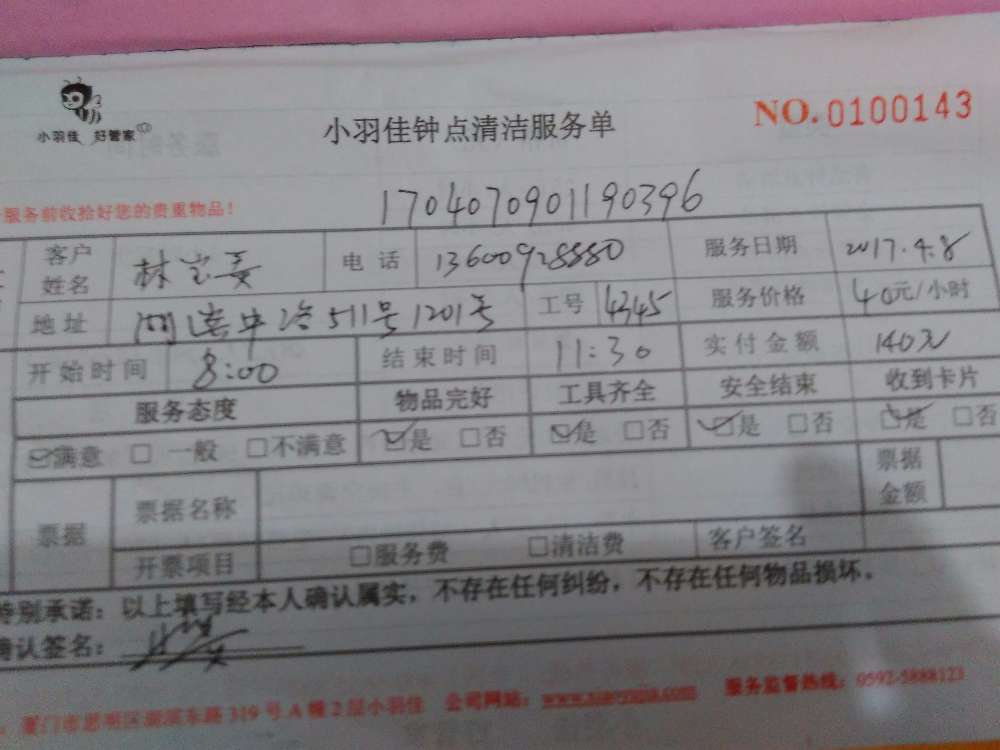 小羽佳 好管家
小羽佳钟点清洁服务单
NO.0100143
服务前收拾好您的贵重物品!
1704070901190396
客户姓名 林 电话 13600928880 服务日期 2017.4.8
地址 511号1201号 工号 4345 服务价格 40元/小时
开始时间 8:00 结束时间 11:30 实付金额 140元
服务态度 物品完好 工具齐全 安全结束 收到卡片
☑满意 □ 一般 □不满意 ☑是 □否 ☑是 □否 ☑是 □否 ☑是 □否
票据 票据名称 票据金额
开票项目 □服务费 □清洁费 客户签名
特别承诺:以上填写经本人确认属实,不存在任何纠纷,不存在任何物品损坏。
确认签名:
厦门市思明区湖滨东路 319 号 A 幢 2 层小羽佳 公司网站: 服务监督热线:0592-5888123